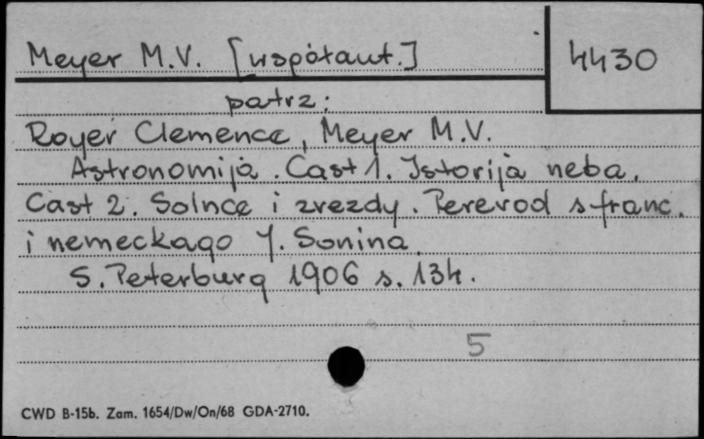 Meyer M.V. [współaut.] 4430
patrz:
Royer Clemence, Meyer M.V.
Astronomija. Čast 1. Istorija neba.
Čast 2. Solnce i zvezdy. Perevod s franc.
i nemeckago J. Sonina.
S. Peterburg 1906 s. 134.
5
CWD B-15b. Zam. 1654/Dw/On/68 GDA-2710.